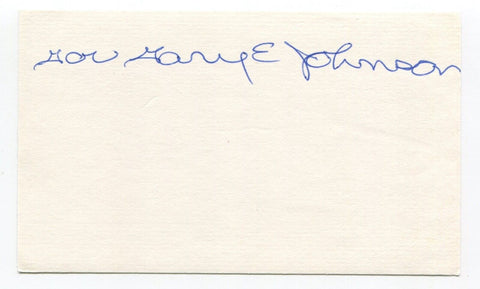 Gov Gary E Johnson